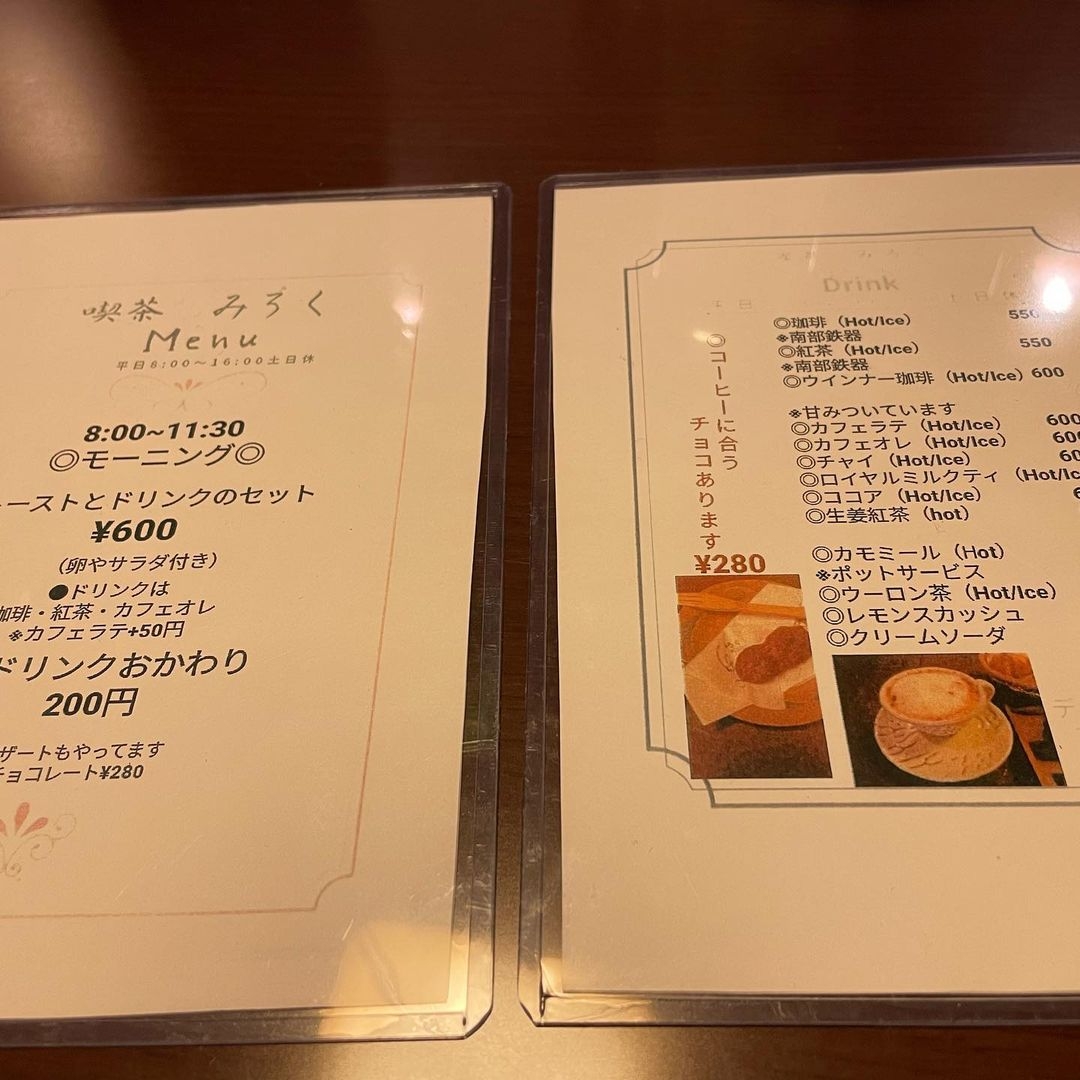 喫茶 みろく
Menu
平日8:00〜16:00土日休
8:00~11:30
◎モーニング◎
ーストとドリンクのセット
¥600
(卵やサラダ付き)
●ドリンクは
珈琲・紅茶・カフェオレ
※カフェラテ+50円
ドリンクおかわり
200円
ザートもやってます
チョコレート¥280
Drink
平日 土日休
◎コーヒーに合う
チョコあります
¥280
◎珈琲（Hot/Ice） 550
※南部鉄器
◎紅茶（Hot/Ice） 550
※南部鉄器
◎ウインナー珈琲（Hot/Ice）600
※甘みついています
◎カフェラテ（Hot/Ice） 600
◎カフェオレ（Hot/Ice） 600
◎チャイ（Hot/Ice） 60
◎ロイヤルミルクティ（Hot/Ic
◎ココア（Hot/Ice） 6
◎生姜紅茶（hot）
◎カモミール（Hot）
※ポットサービス
◎ウーロン茶（Hot/Ice）
◎レモンスカッシュ
◎クリームソーダ
デ